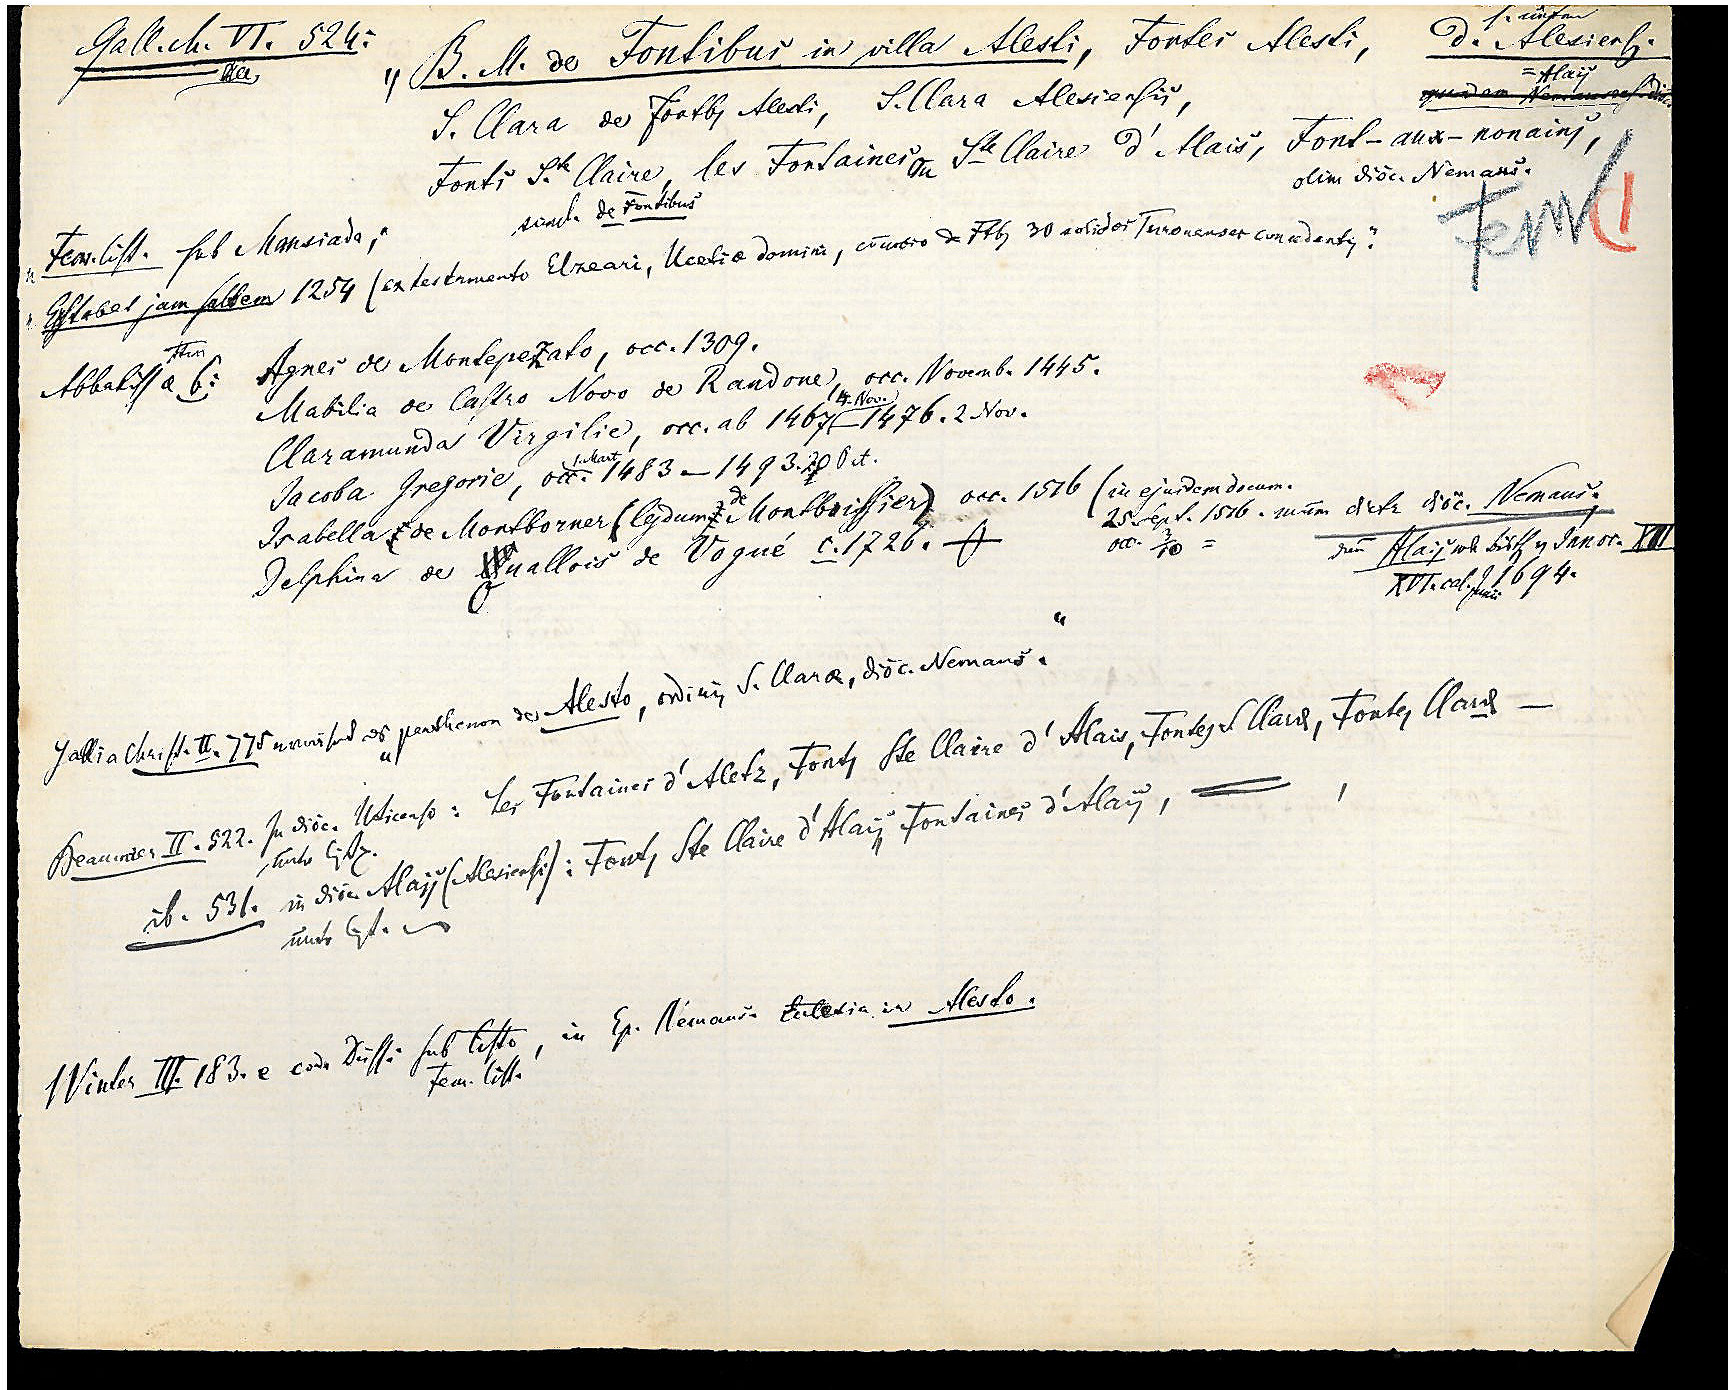 Gall. ch. VI. 524:
"B. M. de Fontibus in villa Alesti, Fontes Alesti, d. Alesiens.
= Alais
S. Clara de Fontb. Alesti, S. Clara Alesiensis,
Fonts Ste. Claire, les Fontaines ou Ste Claire d'Alais, Font-aux-nonains,
olim dioc. Nemaus.
de Fontibus
Fem
"Fem. Cist. sub Mansiada,"
"Exstabat jam saltem 1254 (ex testamento Elzeari, Ucetiæ domini, 30 solidos Turonenses".
Abbatissæ 6:
Agnes de Montepezato, occ. 1309.
Mabilia de Castro Novo de Randone, occ. Novemb. 1445.
Claramunda Virgilie, occ. ab 1467 (4. Nov.) – 1476. 2 Nov.
Jacoba Gregorie, occ. 1. Mart. 1483 – 1493. 20 Oct.
Isabella de Montborner ( de Montboissier) occ. 1516 (in ejusdem docum.
25. Sept. 1516. dioc. Nemaus.
occ. 3/10 =
Delphina de Guallois de Vogué c. 1726.
Alais Innoc. XII
XVI. cal. Junii 1694.
Gallia Christ. II. 775 "parthenon de Alesto, ordinis S. Claræ, dioc. Nemaus."
Beaunier II. 522. In dioc. Uticensi: les Fontaines d'Aletz, Fonts Ste Claire d'Alais, Fontes S Claræ, Fontes Claræ —
ib. 531. in dioc. Alais (Alesiensi): Fonts Ste Claire d'Alais, Fontaines d'Alais,
Winter III. 183. e cod. Düss. sub Cisto, in Ep. Nemaus. Ecclesia in Alesto.
Fem. Cist.